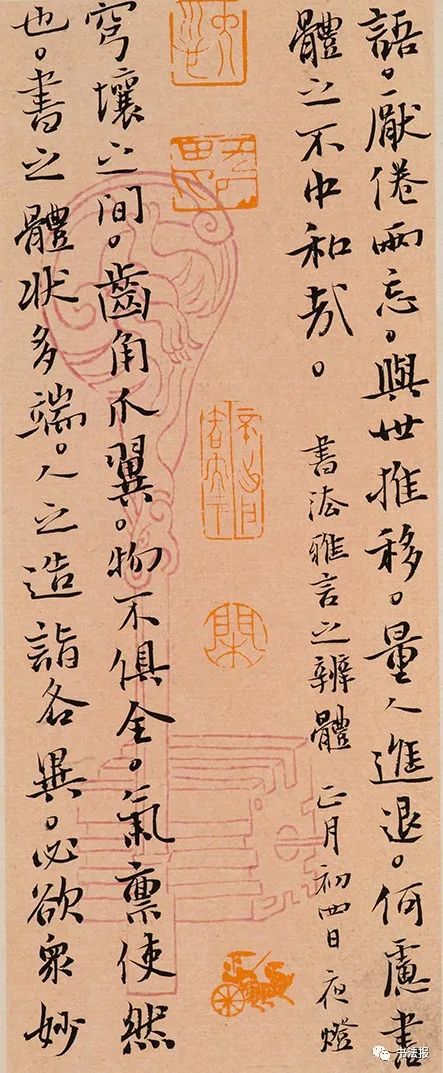 語。厭倦兩忘。與世推移。量人進退。何慮書
體之不中和哉。 書法雅言之辨體 正月初四日夜燈
穹壤之间。齒角爪翼。物不俱全。氣禀使然
也。書之體状多端。人之造詣各異。必欲衆妙
书法报